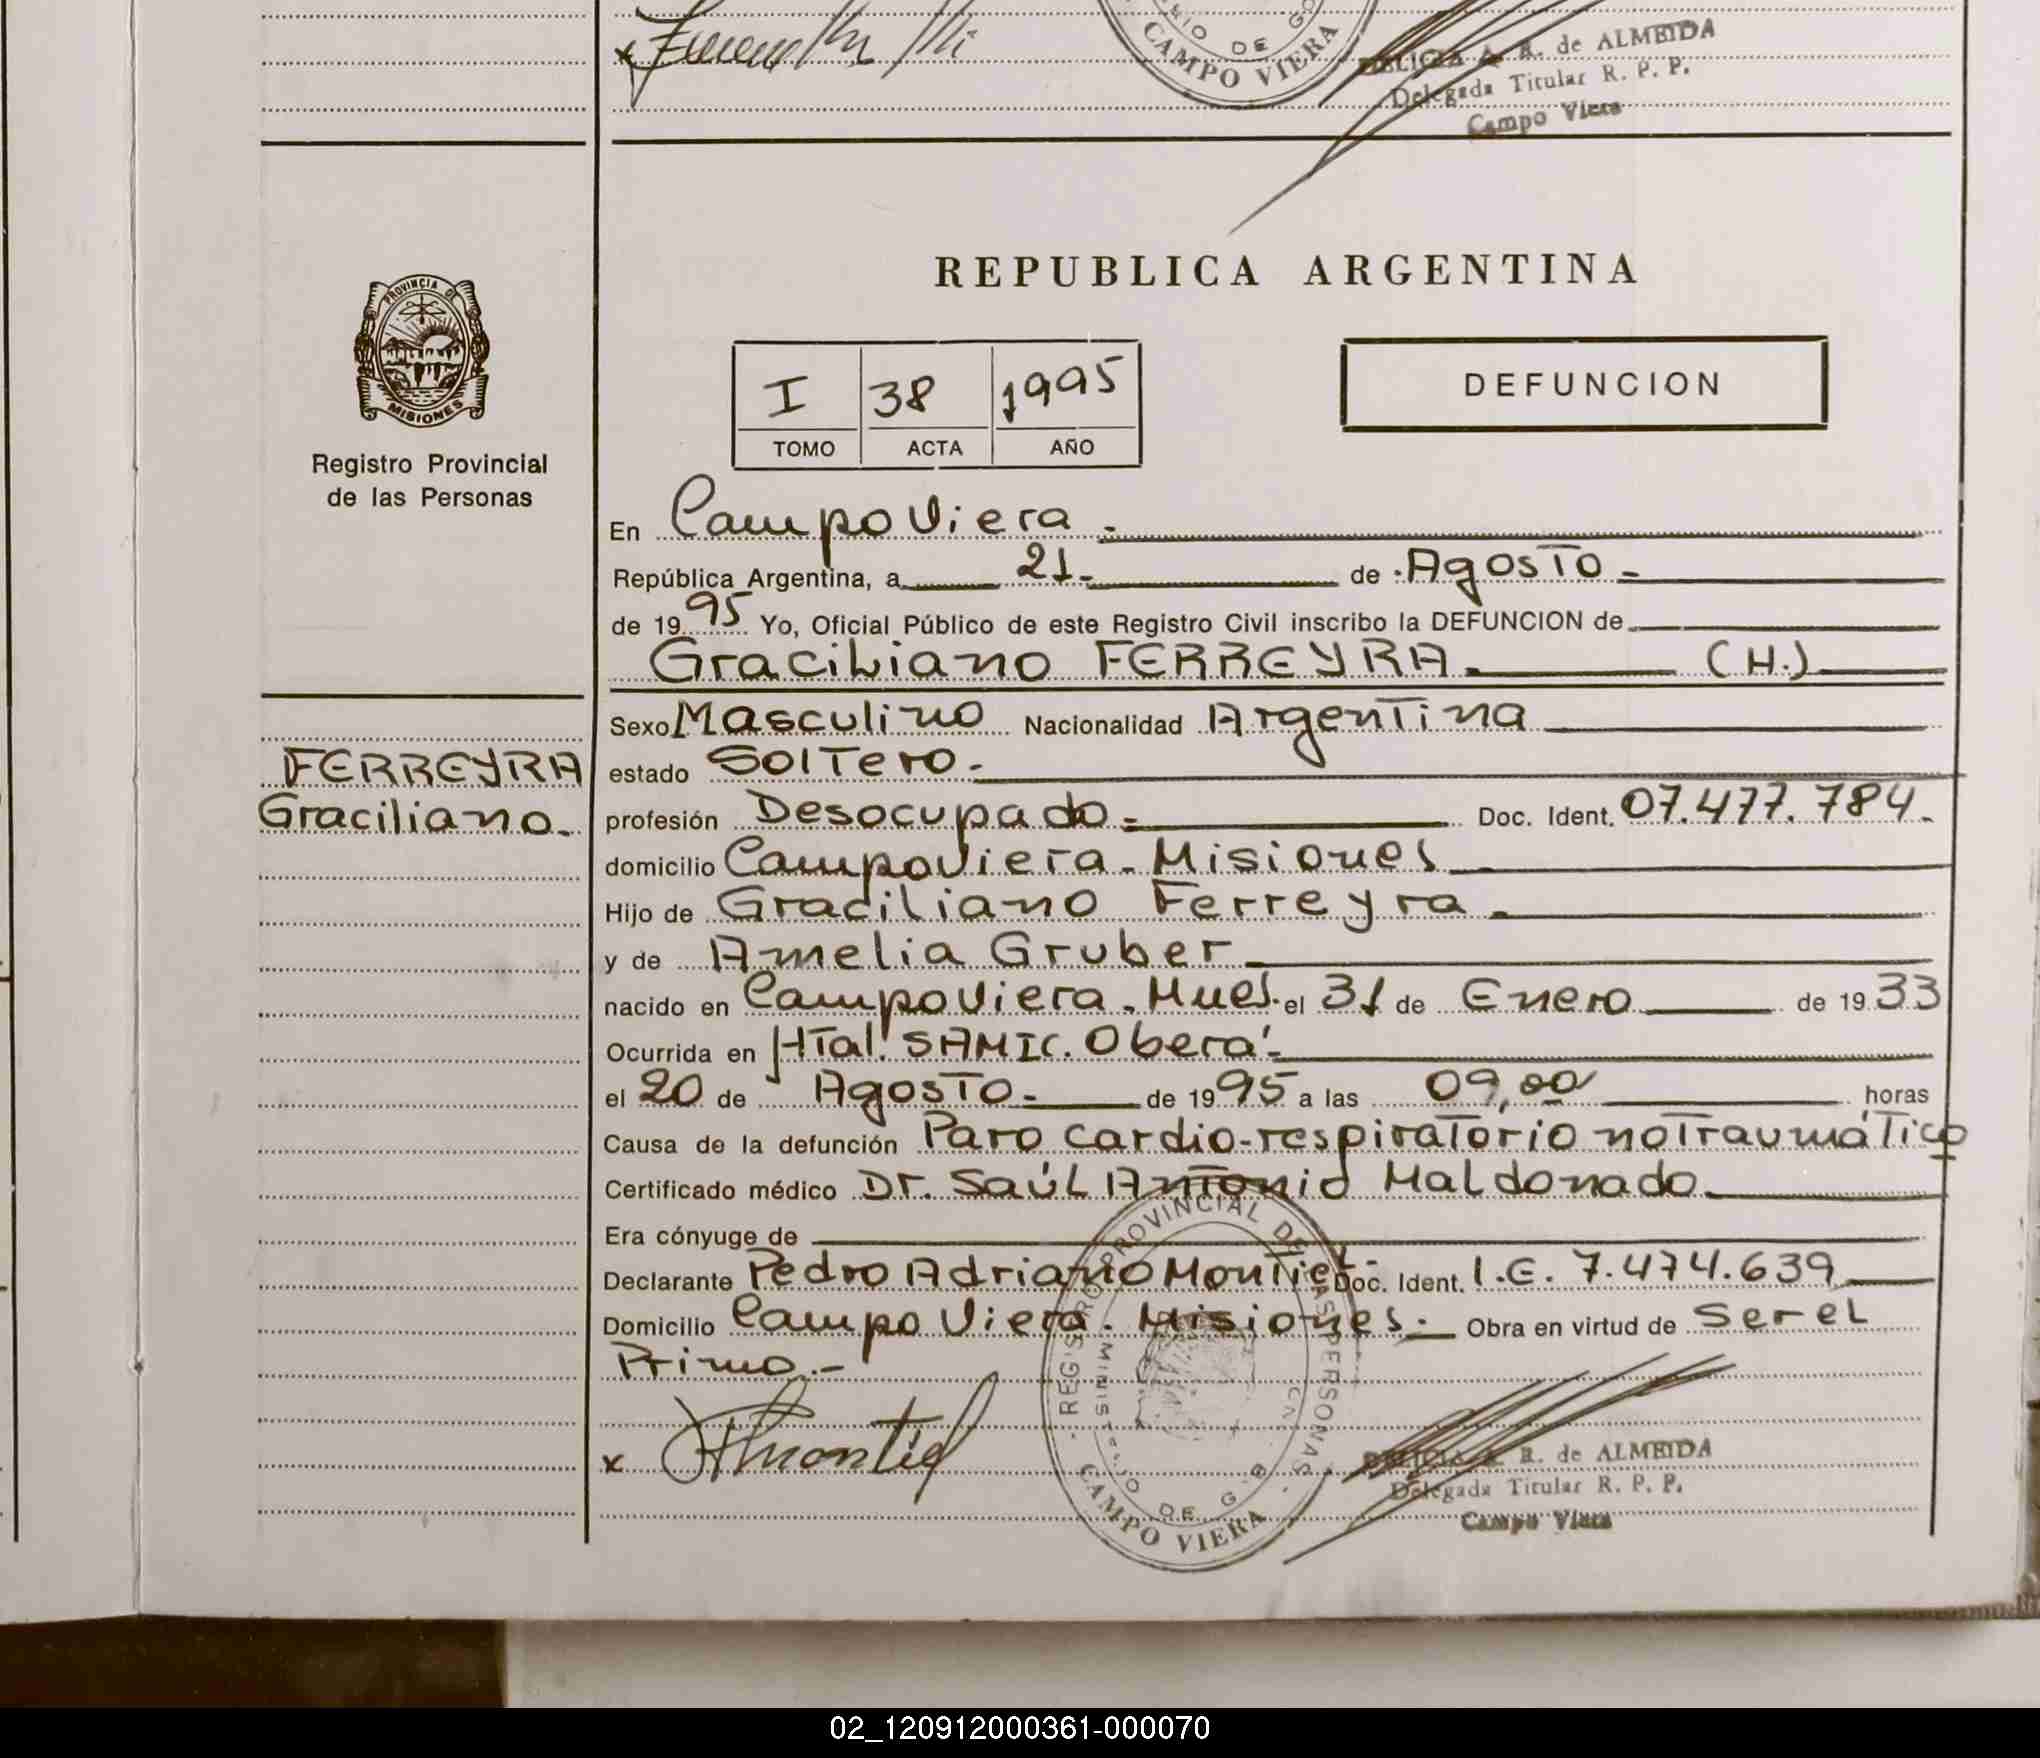 CAMPO VIERA
DELICIA A. R. de ALMEIDA
Delegada Titular R. P. P.
Campo Viera
PROVINCIA DE
MISIONES
Registro Provincial
de las Personas
REPUBLICA ARGENTINA
I 38 1995
TOMO ACTA AÑO
DEFUNCION
En Campo Viera.-
República Argentina, a 21.- de Agosto.-
de 1995 Yo, Oficial Público de este Registro Civil inscribo la DEFUNCION de
Graciliano FERREYRA. (H.)
Sexo Masculino Nacionalidad Argentina
FERREYRA
Graciliano.
estado Soltero.-
profesión Desocupado.- Doc. Ident. 07.477.784.
domicilio Campo Viera. Misiones
Hijo de Graciliano Ferreyra.
y de Amelia Gruber
nacido en Campo Viera. Mnes. el 31 de Enero de 1933
Ocurrida en Htal. SAMIC. Oberá.-
el 20 de Agosto.- de 1995 a las 09,00 horas
Causa de la defunción Paro cardio-respiratorio no Traumático
Certificado médico Dr. Saúl Antonio Maldonado.
Era cónyuge de
Declarante Pedro Adriano Montiel.- Doc. Ident. I.E. 7.474.639
Domicilio Campo Viera. Misiones.- Obra en virtud de Ser el
Primo.-
x Montiel
REGISTRO PROVINCIAL DE LAS PERSONAS
MINISTERIO DE G
CAMPO VIERA
DELICIA A. R. de ALMEIDA
Delegada Titular R. P. P.
Campo Viera
02_120912000361-000070